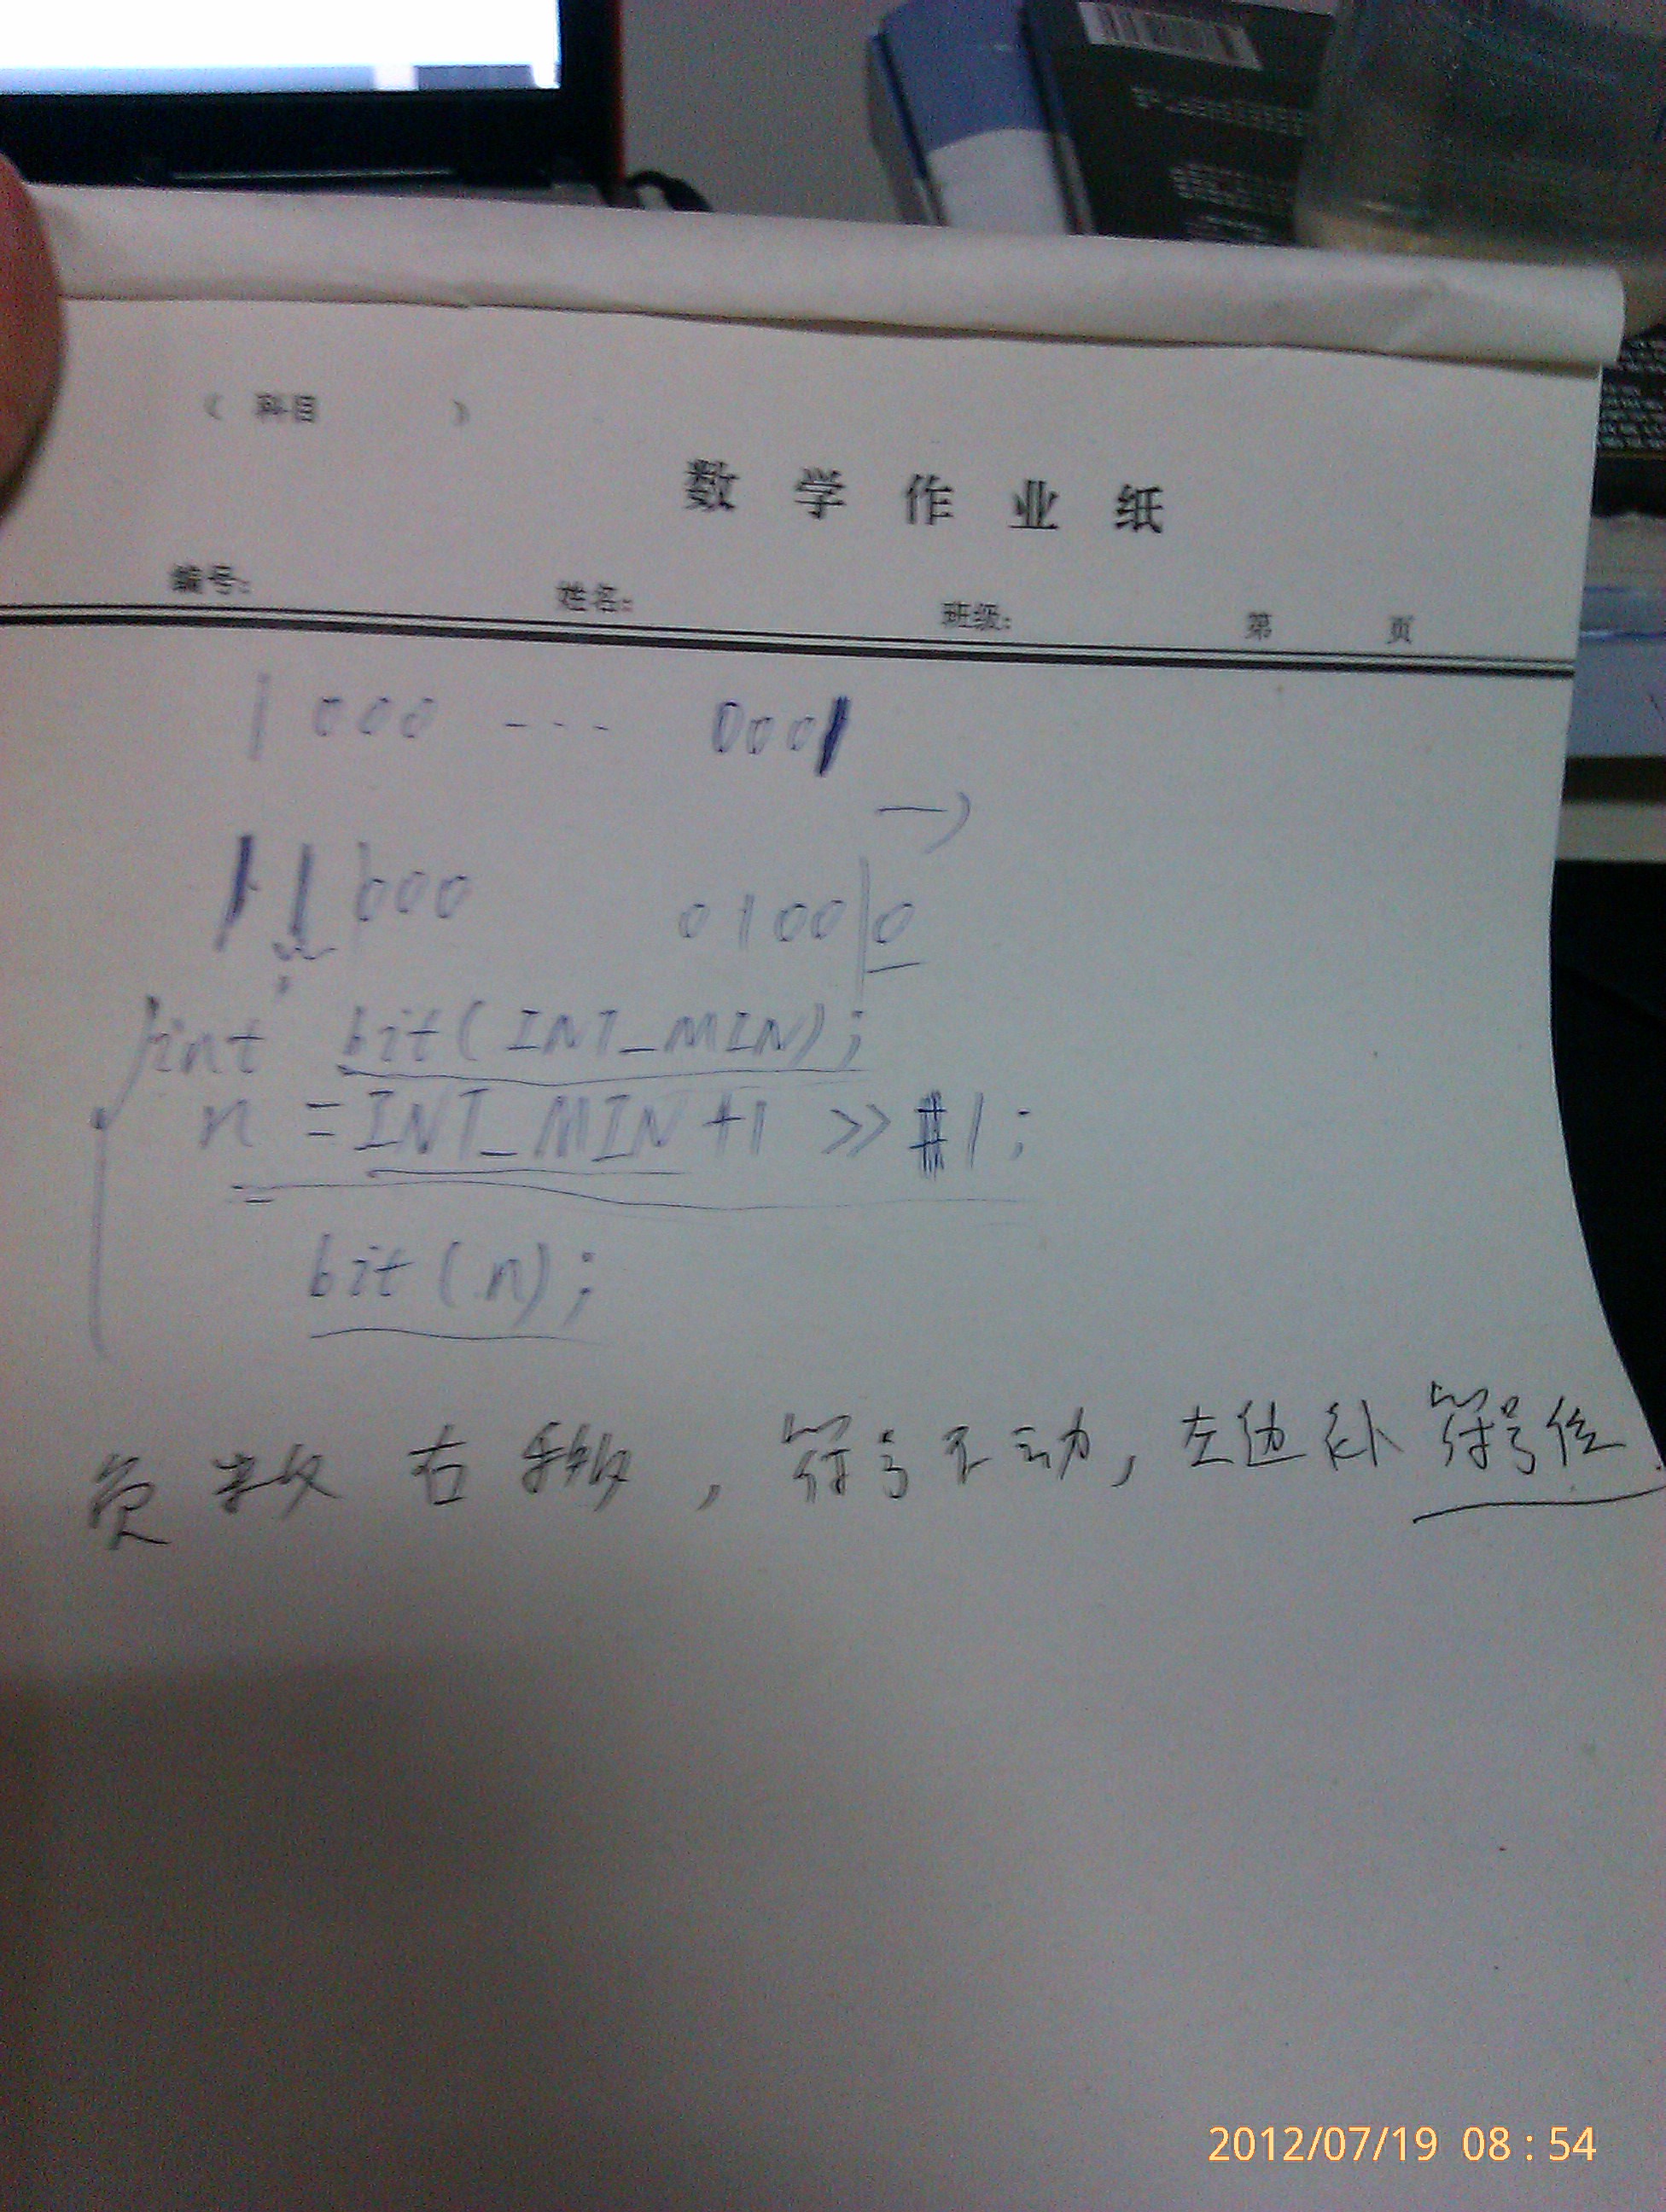 ( 科目 )
数 学 作 业 纸
编号: 姓名: 班级: 第 页
1 000 --- 0001
1 1 000 0100 0
int bit(INT_MIN);
n = INT_MIN +1 >> 1;
bit(n);
负数右移，符号不动，左边补符号位
2012/07/19 08:54